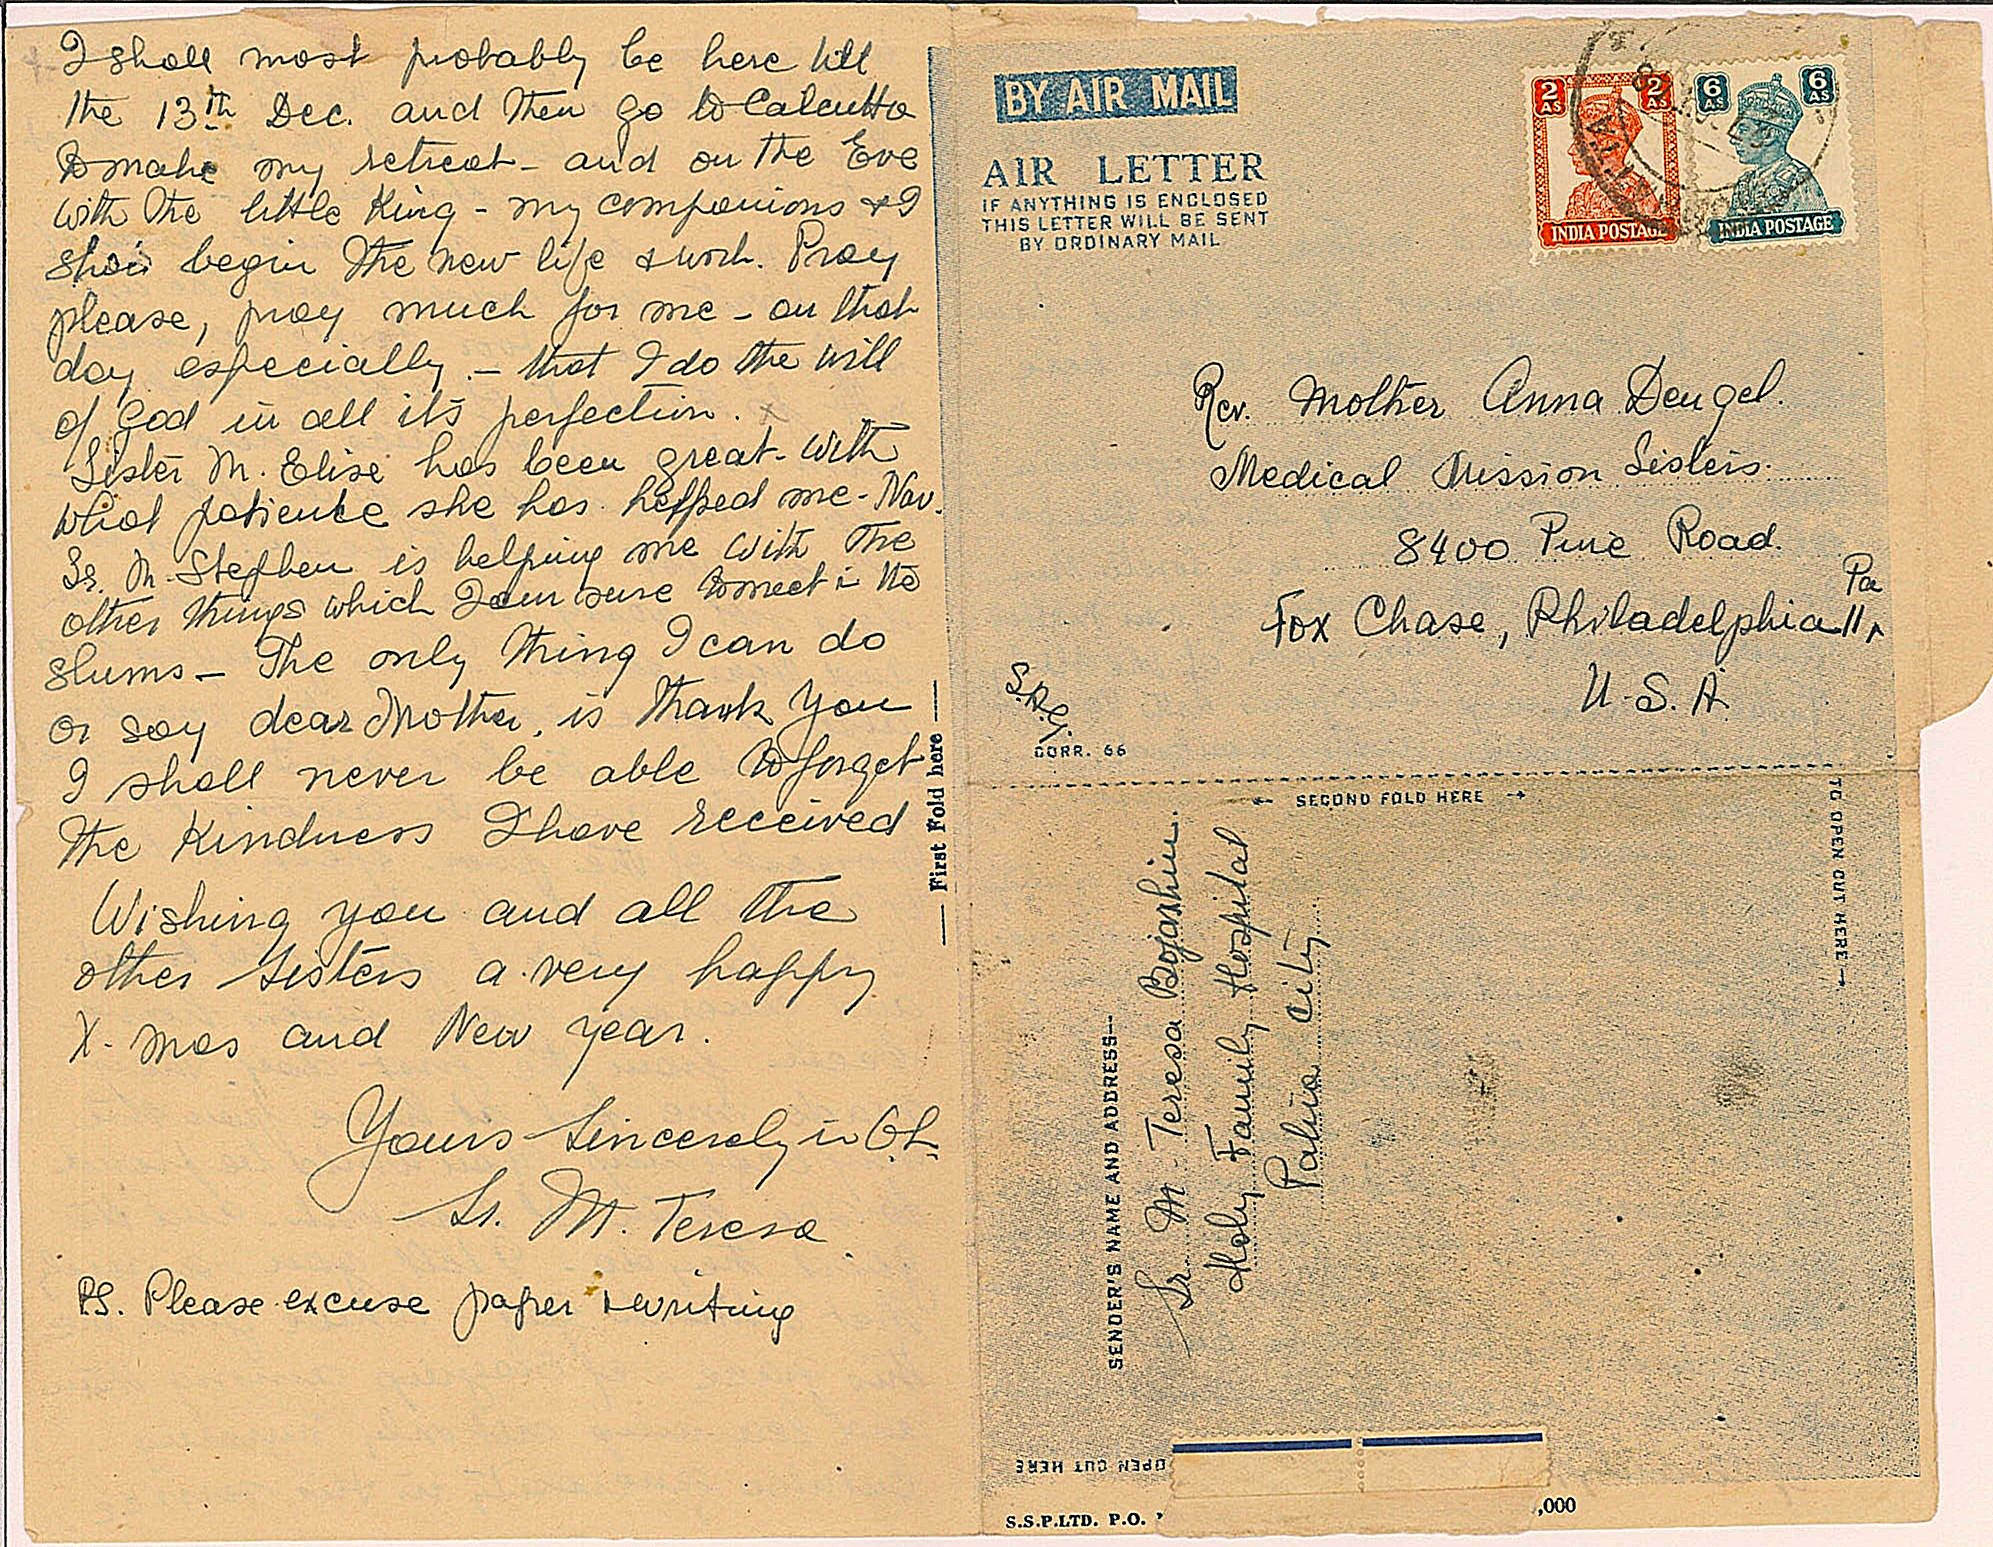 I shall most probably be here till
the 13th Dec. and then go to Calcutta
to make my retreat - and on the Eve
with the little King - my companions & I
shall begin the new life & work. Pray
please, pray much for me - on that
day especially - that I do the will
of God in all its perfection. x
Sister M. Elise has been great - with
what patience she has helped me - Now.
Sr. M. Stephen is helping me with the
other things which I am sure to meet in the
slums - The only thing I can do
or say dear Mother, is thank you
I shall never be able to forget
the Kindness I have received
Wishing you and all the
other sisters a very happy
X-mas and New year.
Yours sincerely in
Sr. M. Teresa
P.S. Please excuse paper & writing
First Fold here
BY AIR MAIL
AIR LETTER
IF ANYTHING IS ENCLOSED
THIS LETTER WILL BE SENT
BY ORDINARY MAIL
2 AS 2 AS
INDIA POSTAGE
6 AS 6 AS
INDIA POSTAGE
Rev. Mother Anna Dengel.
Medical Mission Sisters.
8400 Pine Road.
Fox Chase, Philadelphia 11 Pa
U.S.A.
CORR. 66
← SECOND FOLD HERE →
TO OPEN CUT HERE
SENDER'S NAME AND ADDRESS—
Sr. M. Teresa Bojaxhiu.
Holy Family Hospital
Patna City
OPEN CUT HERE
S.S.P.LTD. P.O. ,000